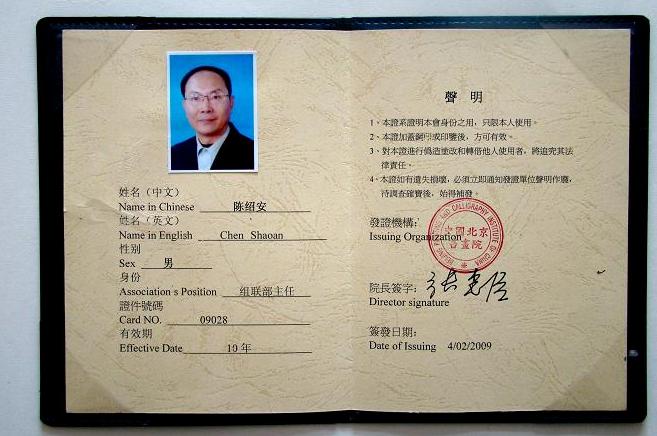 姓名（中文）
Name in Chinese 陈绍安
姓名（英文）
Name in English Chen Shaoan
性别
Sex 男
身份
Association s Position 组联部主任
證件號碼
Card NO. 09028
有效期
Effective Date 10年
聲 明
1、本證系證明本會身份之用，只限本人使用。
2、本證加蓋鋼印或印鑒後，方可有效。
3、對本證進行僞造塗改和轉借他人使用者，將追究其法
律責任。
4、本證如有遺失損壞，必須立即通知發證單位聲明作廢，
待調查確實後，始得補發。
發證機構：
Issuing Organization
北京
院
PAINTING AND CALLIGRAPHY INSTITUTE OF CHINA
院長簽字：
Director signature
簽發日期：
Date of Issuing 4/02/2009